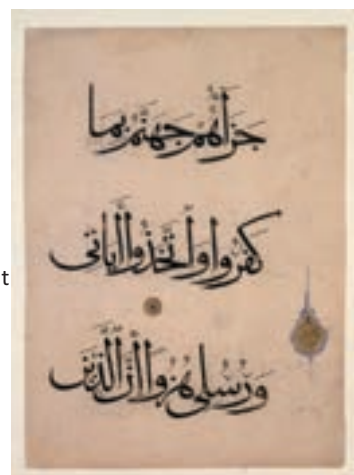 جَزَاؤُهُمْ جَهَنَّمُ بِمَا
كَفَرُوا وَاتَّخَذُوا اٰيَاتى
t
وَرُسُلى هُزُوًا اِنَّ الَّذينَ